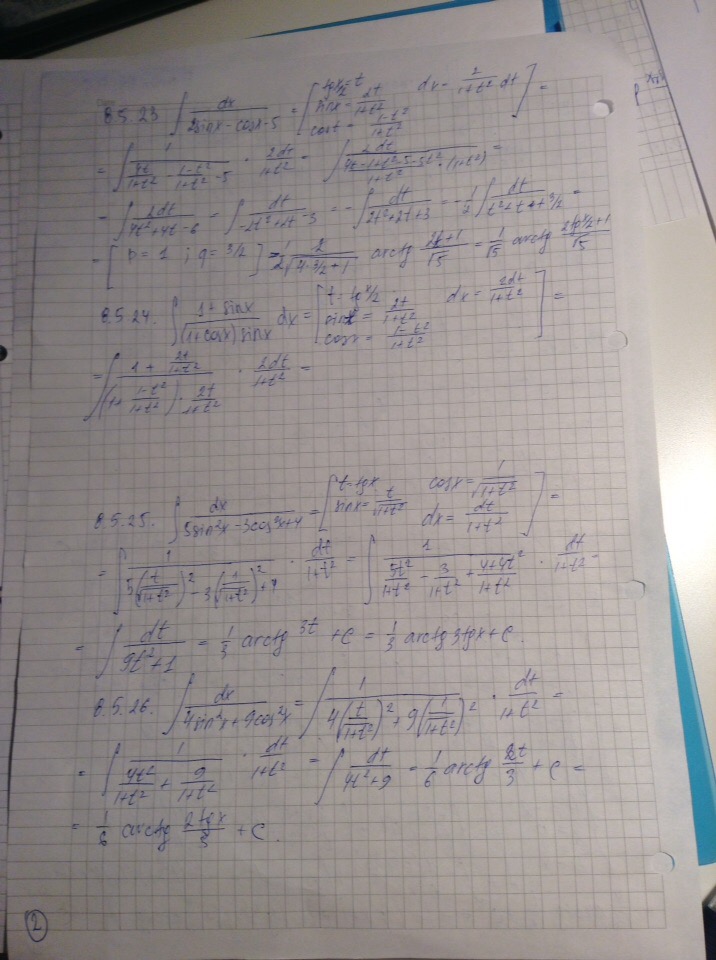 8.5.23 ∫ dx/(2sinx - cosx - 5) = [tg x/2 = t
sinx = 2t/(1+t²) dx = 2/(1+t²) dt
cosx = (1-t²)/(1+t²)] =
= ∫ 1/(4t/(1+t²) - (1-t²)/(1+t²) - 5) · 2dt/(1+t²) =
= ∫ 2dt/(4t²+4t-6) = ∫ dt/(-2t²+2t-3) = -∫ dt/(2t²+2t+3) = -1/2 ∫ dt/(t²+t+3/2) =
= [p = 1 ; q = 3/2] = 1/2 · 2/√(4·3/2+1) arctg (2t+1)/√5 = 1/√5 arctg (2tg x/2+1)/√5
8.5.24. ∫ (1+sinx)/((1+cosx)sinx) dx = [t = tg x/2 dx = 2dt/(1+t²)
sinx = 2t/(1+t²)
cosx = (1-t²)/(1+t²)] =
= ∫ (1 + 2t/(1+t²))/((1+(1-t²)/(1+t²)) · 2t/(1+t²)) · 2dt/(1+t²) =
8.5.25. ∫ dx/(5sin²x - 3cos²x + 4) = [t = tgx cosx = 1/√(1+t²)
sinx = t/√(1+t²) dx = dt/(1+t²)] =
= ∫ 1/(5(t/√(1+t²))² - 3(1/√(1+t²))² + 4) · dt/(1+t²) = ∫ 1/(5t²/(1+t²) - 3/(1+t²) + (4+4t²)/(1+t²)) · dt/(1+t²) =
= ∫ dt/(9t²+1) = 1/3 arctg 3t + C = 1/3 arctg 3tgx + C.
8.5.26. ∫ dx/(4sin²x + 9cos²x) = ∫ 1/(4(t/√(1+t²))² + 9(1/√(1+t²))²) · dt/(1+t²) =
= ∫ 1/(4t²/(1+t²) + 9/(1+t²)) · dt/(1+t²) = ∫ dt/(4t²+9) = 1/6 arctg 2t/3 + C =
= 1/6 arctg 2tgx/3 + C.
2